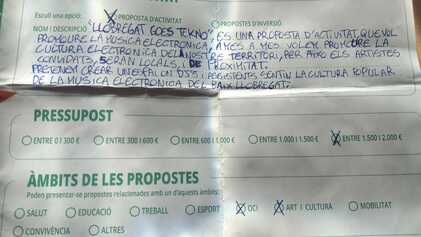 Escull una opció: PROPOSTA D'ACTIVITAT PROPOSTES D'INVERSIÓ
NOM I DESCRIPCIÓ "LLOBREGAT GOES TEKNO", ES UNA PROPOSTA D'ACTIVITAT, QUE VOL
PROMOURE LA MÚSICA ELECTRONICA, A MES A MES. VOLEM PROMOURE LA
CULTURA ELECTRONICA DEL NOSTRE TERRITORI, PER AIXO ELS ARTISTES
CONVIDATS, SERAN LOCALS, I DE PROXIMITAT.
PRETENEM CREAR UN ESPAI ON DJS I ASSISTENTS SENTIN LA CULTURA POPULAR
DE LA MÚSICA ELECTRONICA DEL BAIX LLOBREGAT.
PRESSUPOST
ENTRE 0 I 300 € ENTRE 300 I 600 € ENTRE 1.000 I 1.500 € ENTRE 1.500 I 2.000 €
ÀMBITS DE LES PROPOSTES
Poden presentar-se propostes relacionades amb un d'aquests àmbits:
SALUT EDUCACIÓ TREBALL ESPORT OCI ART I CULTURA MOBILITAT
CONVIVÈNCIA ALTRES